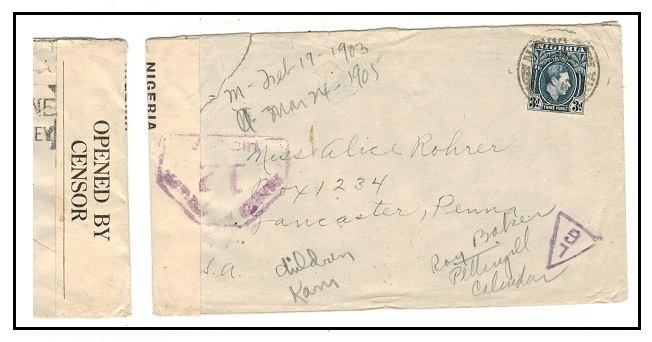 OPENED BY
CENSOR
NIGERIA
NIGERIA
3d 3d
M- Feb 19-1903
Mar 24-1905
Miss Alice Rohrer
Box 1234
Lancaster, Penna
S.A.
children
Roy Baker
Pettingill
Calendar